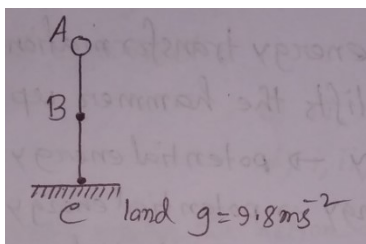 A
B
C land g=9.8ms⁻²